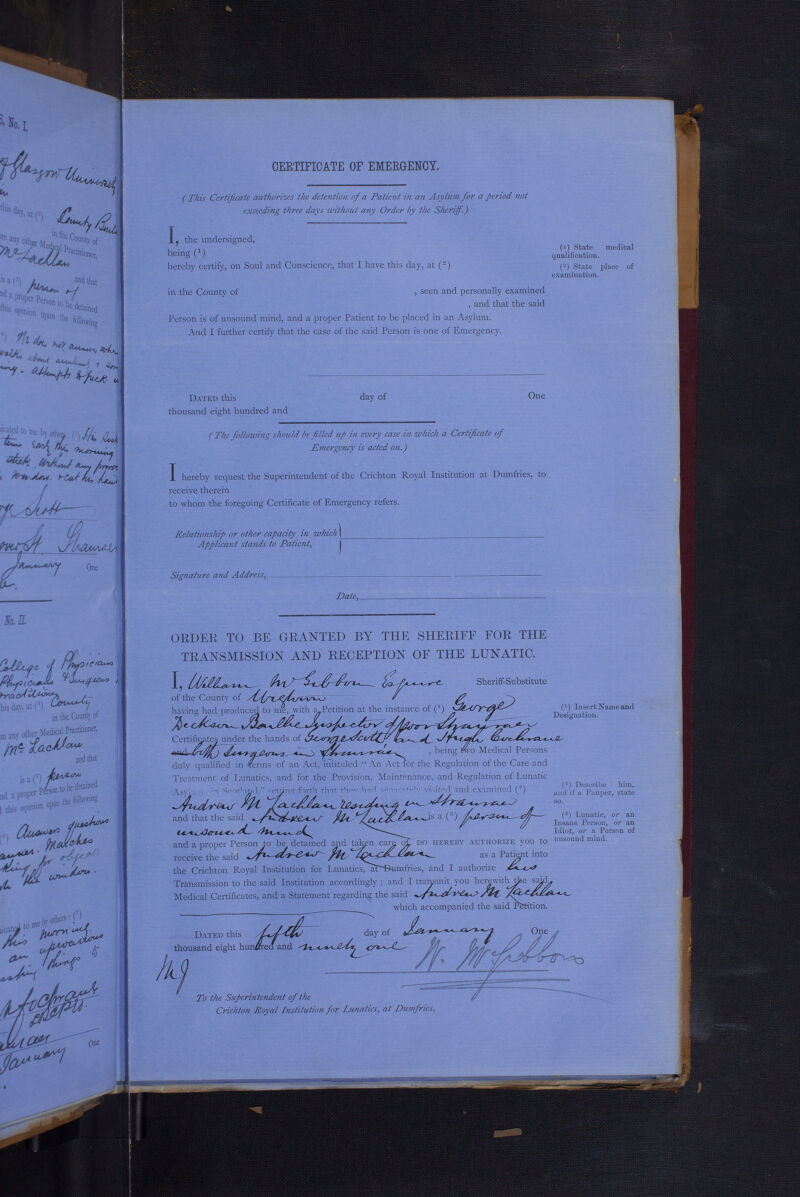 E, No. I.
of Glasgow University
this day, at (²) County Buil
in the County of
m any other Medical Practitioner,
McLachlan
and that
is a (³) person of
nd a proper Person to be detained
this opinion upon the following
He does not answer when
walks about
attempts to pick
icated to me by others (⁵) His
time early this morning
stick without any
window & cut his hand
ge Scott
Stranraer
January One
No. II.
College of Physicians
Physicians & Surgeons
Practitioner
his day, at (²) County
in the County of
m any other Medical Practitioner,
McLachlan
and that
is a (³) person
nd a proper Person to be detained
this opinion upon the following
Answers questions
manner. Matches
king for
the window.
icated to me by others: (⁵)
this morning.
an uproarious
things to
h Cochrane
January One
CERTIFICATE OF EMERGENCY.
(This Certificate authorizes the detention of a Patient in an Asylum for a period not
exceeding three days without any Order by the Sheriff.)
I, the undersigned,
being (¹)
(¹) State medical
qualification.
hereby certify, on Soul and Conscience, that I have this day, at (²)
(²) State place of
examination.
in the County of , seen and personally examined
, and that the said
Person is of unsound mind, and a proper Patient to be placed in an Asylum.
And I further certify that the case of the said Person is one of Emergency.
DATED this day of One
thousand eight hundred and
(The following should be filled up in every case in which a Certificate of
Emergency is acted on.)
I hereby request the Superintendent of the Crichton Royal Institution at Dumfries, to
receive therein
to whom the foregoing Certificate of Emergency refers.
Relationship or other capacity in which
Applicant stands to Patient,
Signature and Address,
Date,
ORDER TO BE GRANTED BY THE SHERIFF FOR THE
TRANSMISSION AND RECEPTION OF THE LUNATIC.
I, William McGibbon Esquire Sheriff-Substitute
of the County of Wigtown
having had produced to me, with a Petition at the instance of (¹) George
(¹) Insert Name and
Designation.
Dickson Baillie Inspector of Poor Stranraer
Certificates under the hands of George Scott and Hugh Cochrane
both Surgeons in Stranraer, being two Medical Persons
duly qualified in terms of an Act, intituled "An Act for the Regulation of the Care and
Treatment of Lunatics, and for the Provision, Maintenance, and Regulation of Lunatic
Asylums in Scotland," setting forth that they had separately visited and examined (²)
(²) Describe him,
and if a Pauper, state
so.
Andrew McLachlan residing in Stranraer
and that the said Andrew McLachlan is a (³) person of
(³) Lunatic, or an
Insane Person, or an
Idiot, or a Person of
unsound mind.
unsound mind
and a proper Person to be detained and taken care of, DO HEREBY AUTHORIZE you to
receive the said Andrew McLachlan as a Patient into
the Crichton Royal Institution for Lunatics, at Dumfries, and I authorize his
Transmission to the said Institution accordingly; and I transmit you herewith the said
Medical Certificates, and a Statement regarding the said Andrew McLachlan
which accompanied the said Petition.
DATED this fifth day of January One
thousand eight hundred and ninety one
W. McGibbon
To the Superintendent of the
Crichton Royal Institution for Lunatics, at Dumfries.